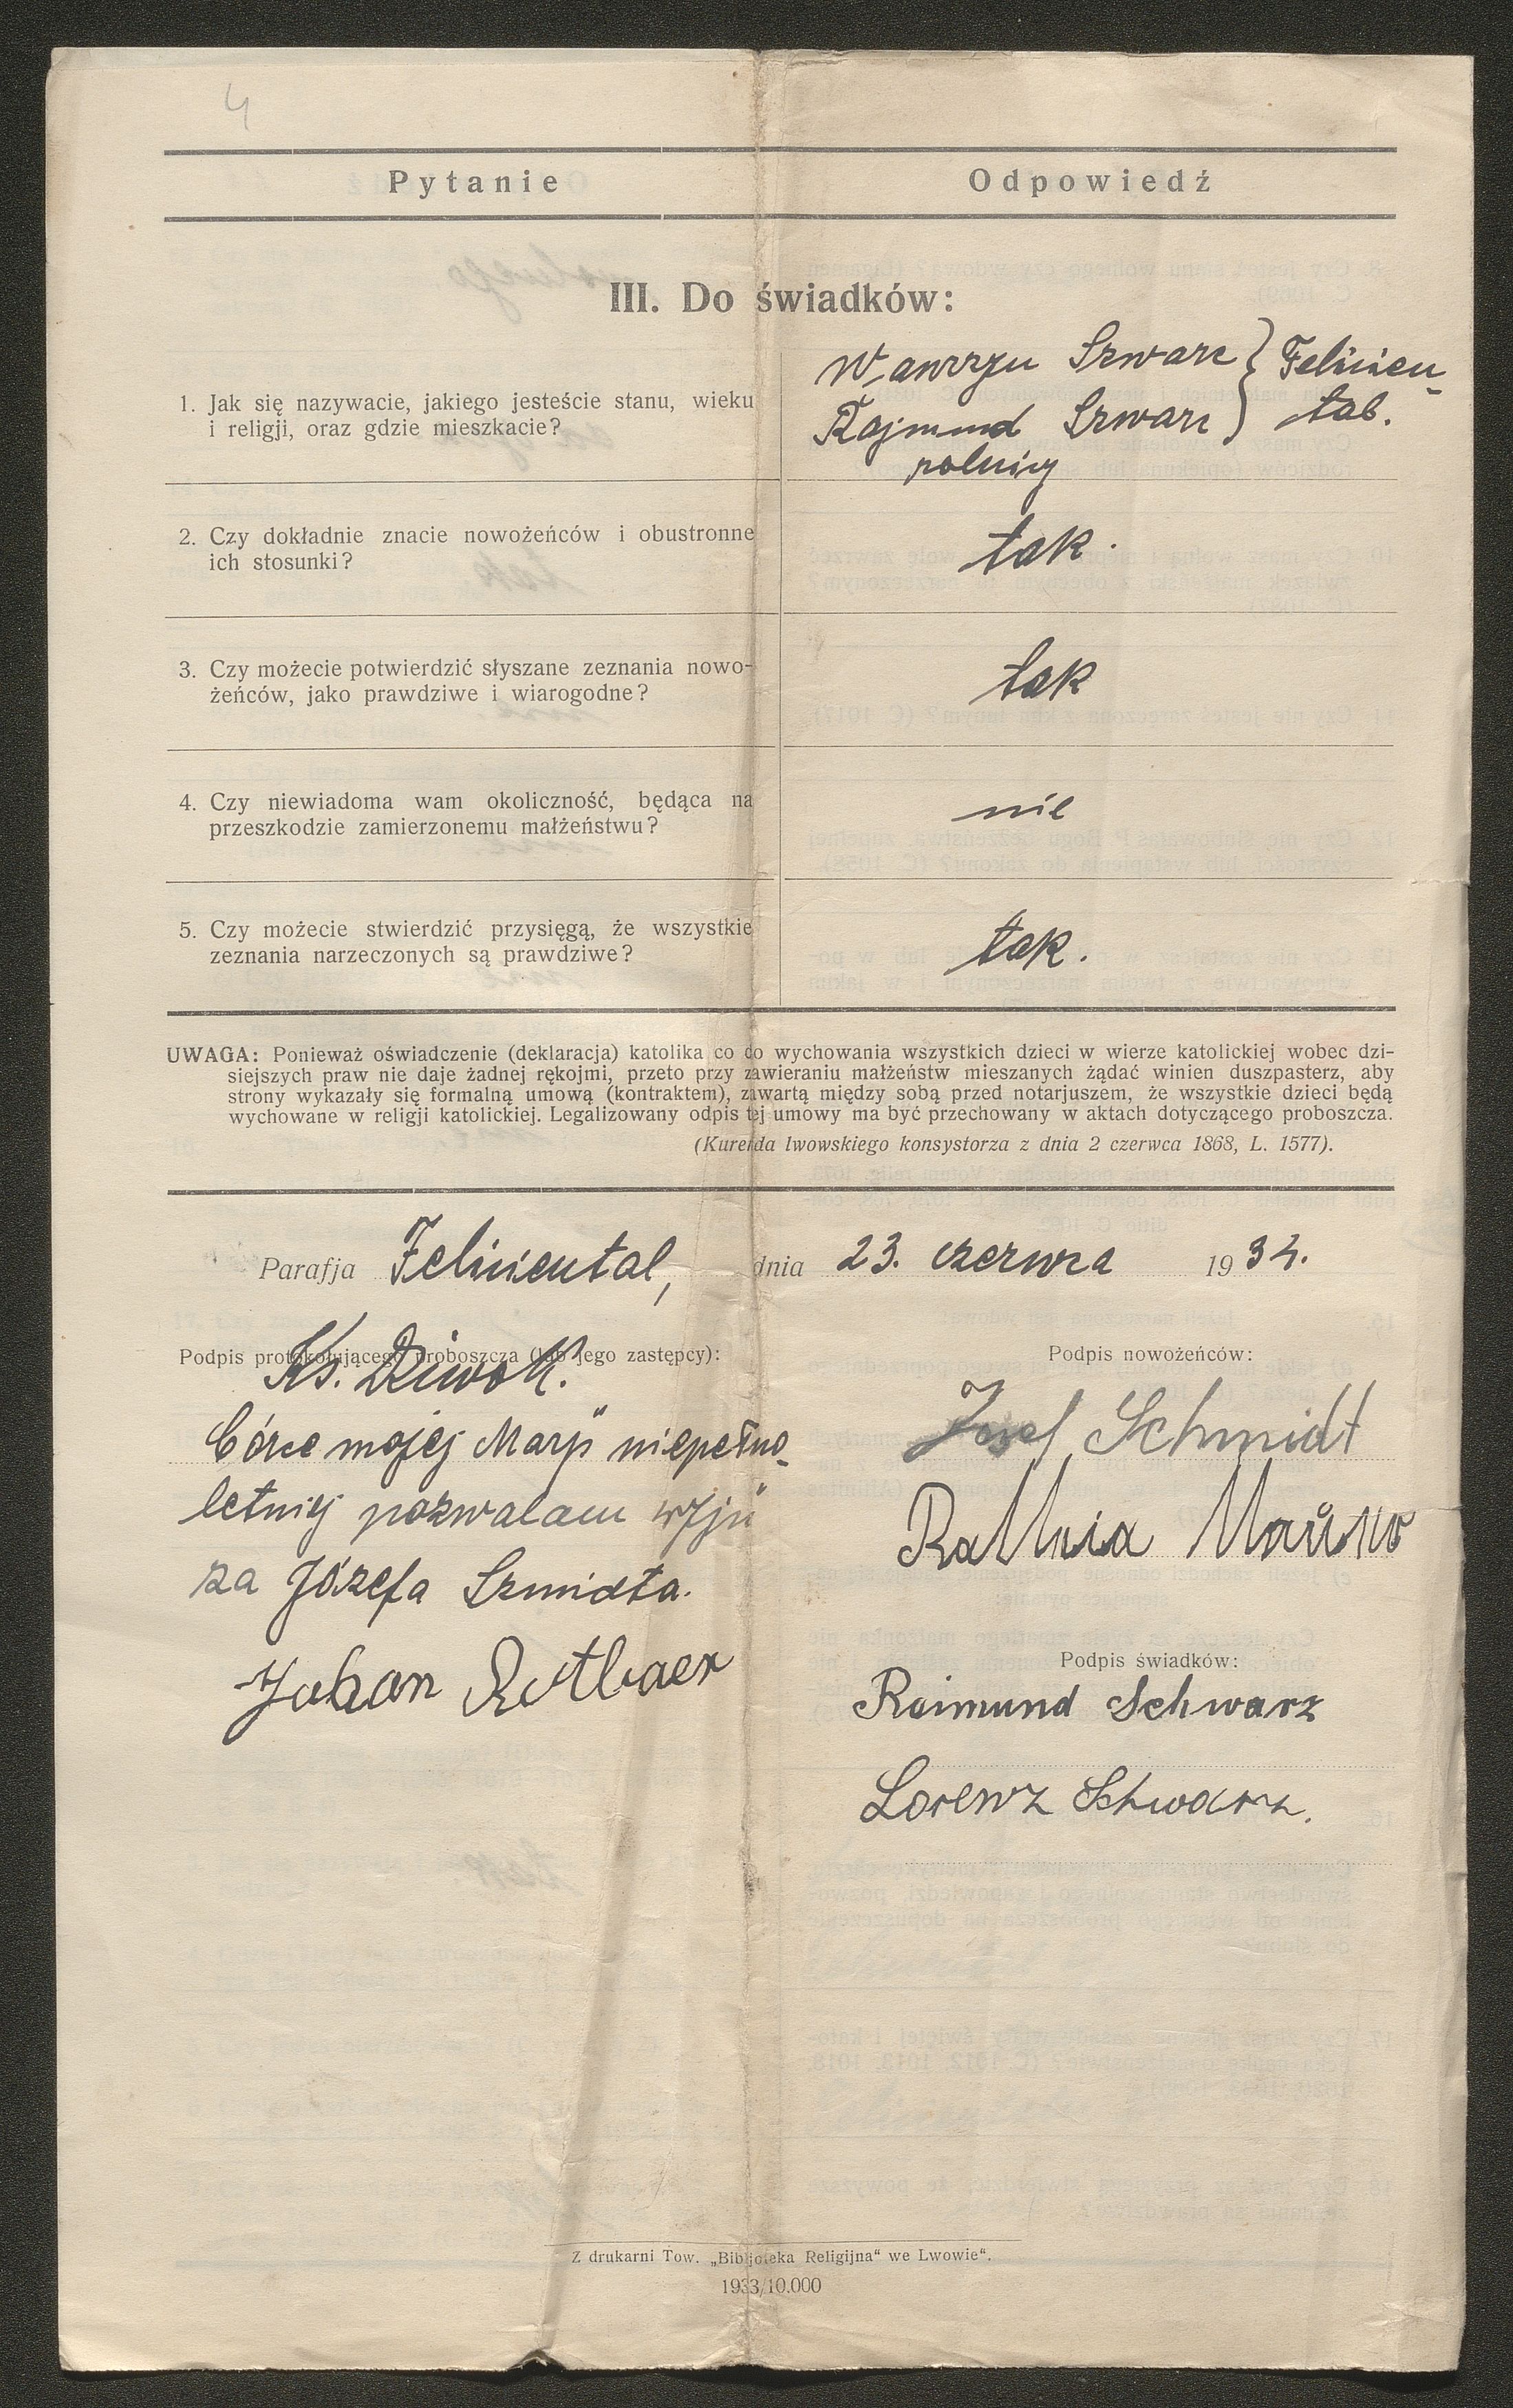 4
Pytanie
Odpowiedź
III. Do świadków:
1. Jak się nazywacie, jakiego jesteście stanu, wieku
i religji, oraz gdzie mieszkacie?
Wawrzyn Szwarc } Felicien-
Rajmund Szwarc } tal.
rolnicy
2. Czy dokładnie znacie nowożeńców i obustronne
ich stosunki?
tak.
3. Czy możecie potwierdzić słyszane zeznania nowo-
żeńców, jako prawdziwe i wiarogodne?
tak
4. Czy niewiadoma wam okoliczność, będąca na
przeszkodzie zamierzonemu małżeństwu?
nie
5. Czy możecie stwierdzić przysięgą, że wszystkie
zeznania narzeczonych są prawdziwe?
tak.
UWAGA: Ponieważ oświadczenie (deklaracja) katolika co do wychowania wszystkich dzieci w wierze katolickiej wobec dzi-
siejszych praw nie daje żadnej rękojmi, przeto przy zawieraniu małżeństw mieszanych żądać winien duszpasterz, aby
strony wykazały się formalną umową (kontraktem), zawartą między sobą przed notarjuszem, że wszystkie dzieci będą
wychowane w religji katolickiej. Legalizowany odpis tej umowy ma być przechowany w aktach dotyczącego proboszcza.
(Kurenda lwowskiego konsystorza z dnia 2 czerwca 1868, L. 1577).
Parafja Feliciental, dnia 23. czerwca 1934.
Podpis protokołującego proboszcza (lub jego zastępcy):
Ks. Dziwok.
Córce mojej Marji niepełno-
letniej pozwalam wyjść
za Józefa Szmidta.
Johan Rotbaer
Podpis nowożeńców:
Josef Schmidt
Podpis świadków:
Reimund Schwarz
Lorenz Schwarz.
Z drukarni Tow. „Bibljoteka Religijna“ we Lwowie“.
1933/10.000